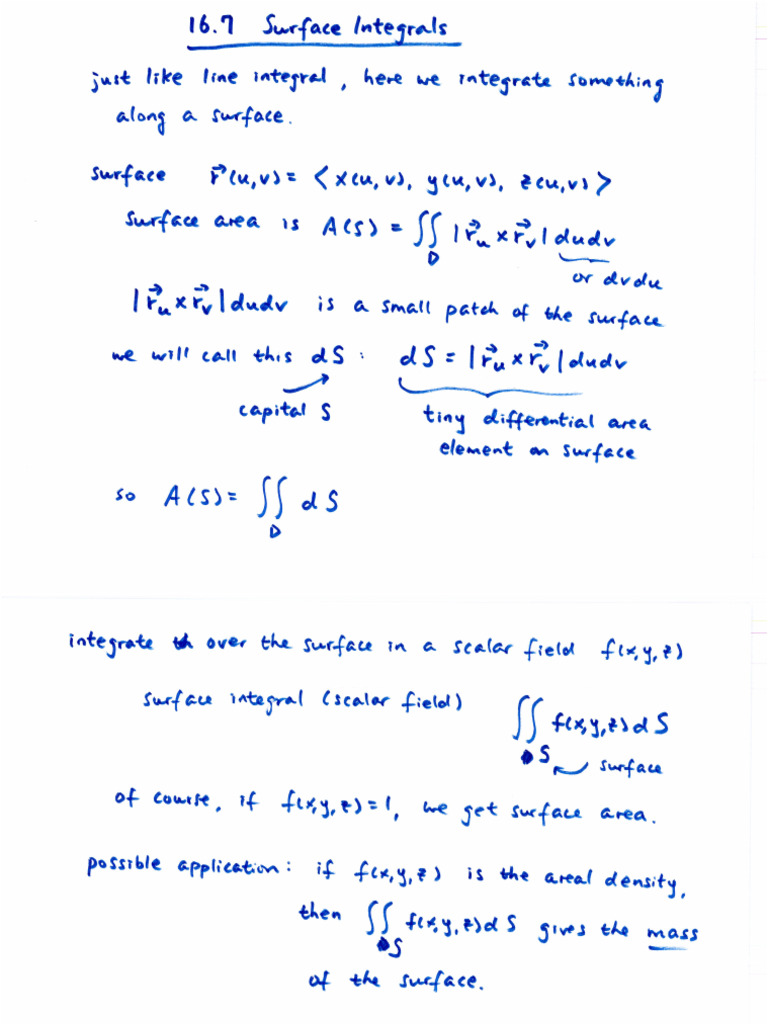 16.7 Surface Integrals
just like line integral, here we integrate something
along a surface.
surface r⃗(u,v) = <x(u,v), y(u,v), z(u,v)>
surface area is A(S) = ∬_D |r⃗_u × r⃗_v| dudv
or dvdu
|r⃗_u × r⃗_v| dudv is a small patch of the surface
we will call this dS : dS = |r⃗_u × r⃗_v| dudv
capital S tiny differential area
element on surface
so A(S) = ∬_D dS
integrate over the surface in a scalar field f(x,y,z)
surface integral (scalar field) ∬_S f(x,y,z) dS
surface
of course, if f(x,y,z) = 1, we get surface area.
possible application: if f(x,y,z) is the areal density,
then ∬_S f(x,y,z) dS gives the mass
of the surface.